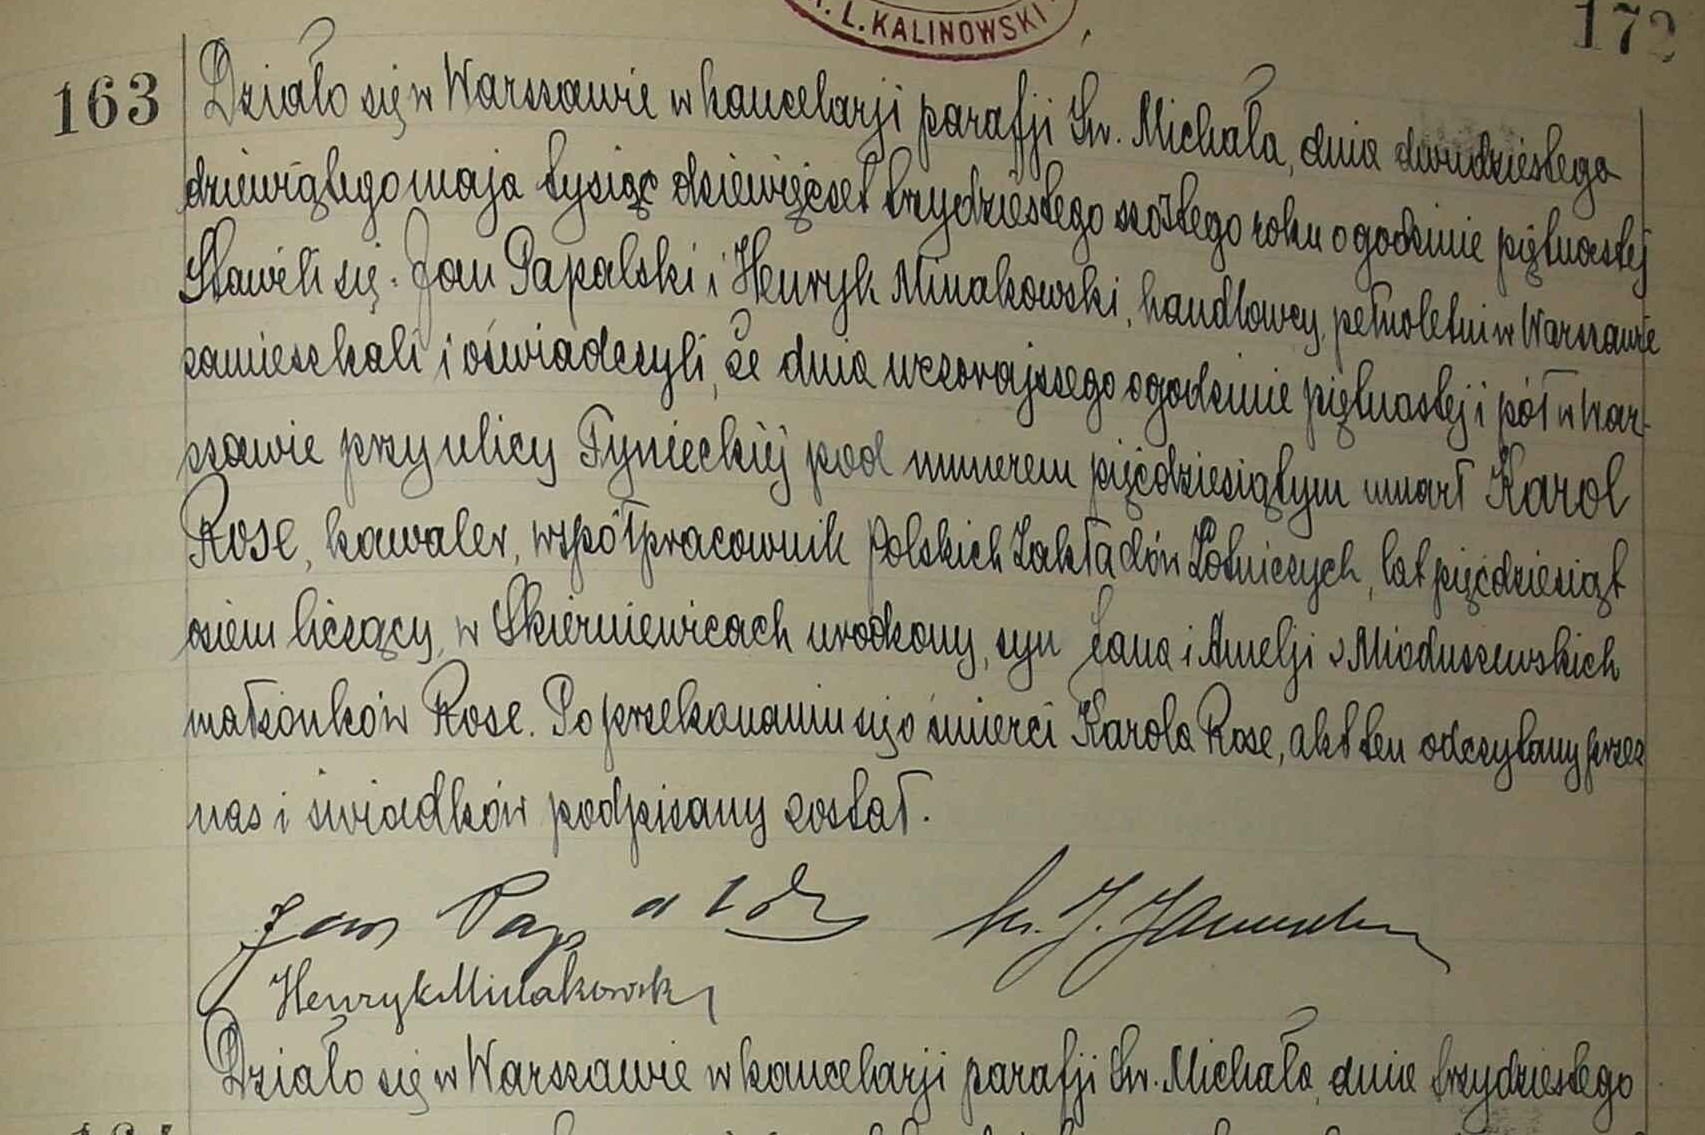 L. KALINOWSKI
172
163
Działo się w Warszawie w kancelarji parafji Św. Michała, dnia dwudziestego
dziewiątego maja tysiąc dziewięćset trzydziestego szóstego roku o godzinie piętnastej
Stawili się: Jan Papalski i Henryk Minakowski, handlowcy, pełnoletni w Warszawie
zamieszkali i oświadczyli, że dnia wczorajszego o godzinie piętnastej i pół w War-
szawie przy ulicy Tynieckiej pod numerem pięćdziesiątym umarł Karol
Rose, kawaler, współpracownik Polskich Zakładów Lotniczych, lat pięćdziesiąt
osiem liczący, w Skierniewicach urodzony, syn Jana i Amelji z Mioduszewskich
małżonków Rose. Po przekonaniu się o śmierci Karola Rose, akt ten odczytany przez
nas i świadków podpisany został.
Jan Papalski
Henryk Minakowski
Działo się w Warszawie w kancelarji parafji Św. Michała, dnia trzydziestego